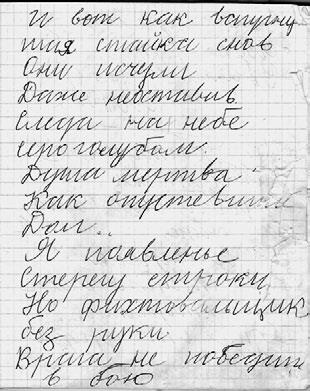 И вот как вспугну
тая стайка снов
Они исчезли
Даже неоставив
Следа на небе
сероголубом.
Душа мертва
Как опустевший
Дом..
Я появленье
Стерегу строки
Но фихтовальщик
без руки
Врага не победит
в бою